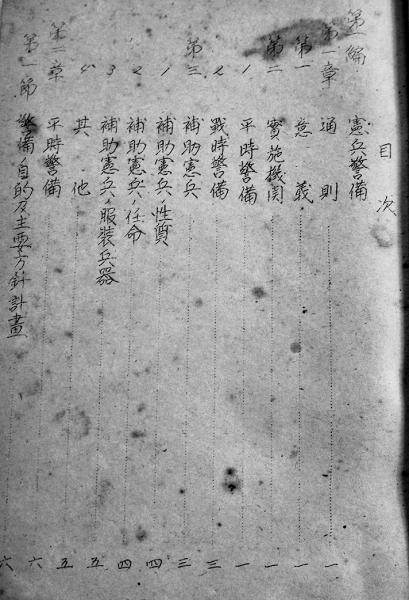 目次
第一編 憲兵警備
第一章 通則 一
第一 意義 一
第二 實施機関 一
1 平時警備 一
2 戰時警備 三
第三 補助憲兵 三
1 補助憲兵ノ性質 四
2 補助憲兵ノ任命 四
3 補助憲兵ノ服装兵器 五
4 其他 五
第二章 平時警備 六
第一節 警備ノ目的及主要方針計畫 六